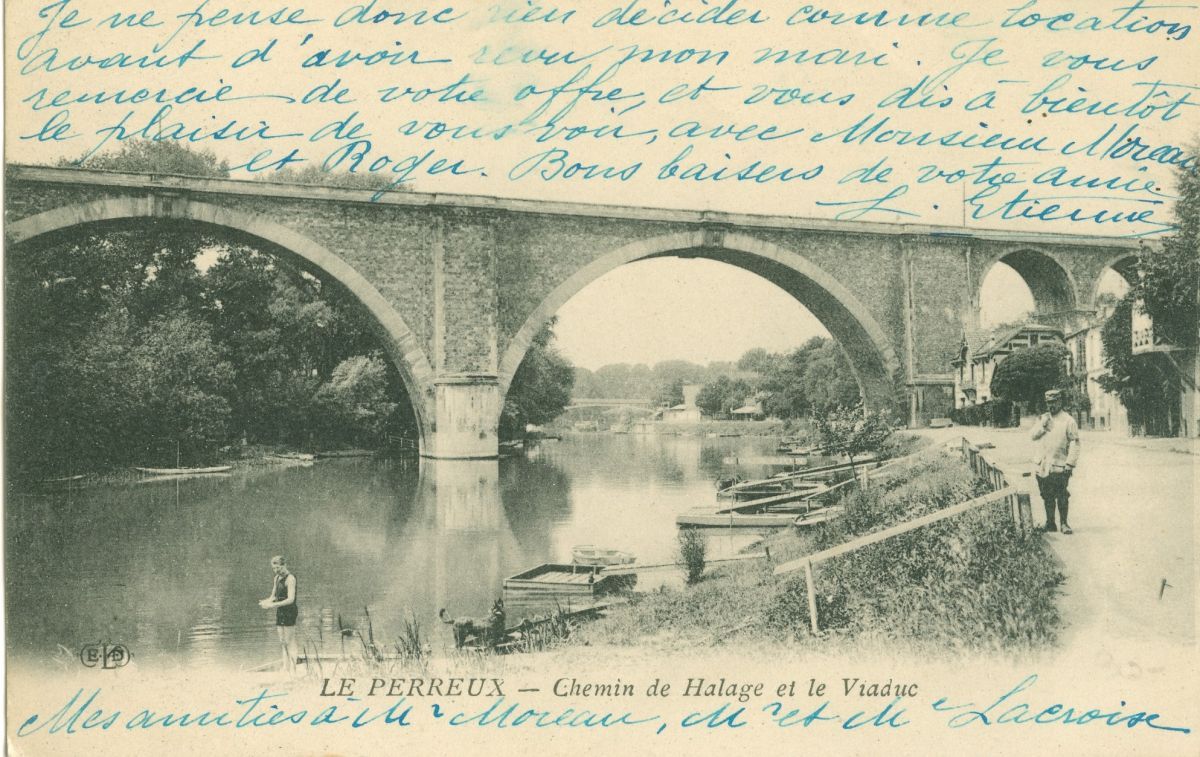 Je ne pense donc rien décider comme location
avant d'avoir revu mon mari. Je vous
remercie de votre offre, et vous dis à bientôt
le plaisir de vous voir, avec Monsieur Moreau
et Roger. Bons baisers de votre amie
L. Etienne
ELD
LE PERREUX — Chemin de Halage et le Viaduc
Mes amitiés à Mr Moreau, Mr et Me Lacroise